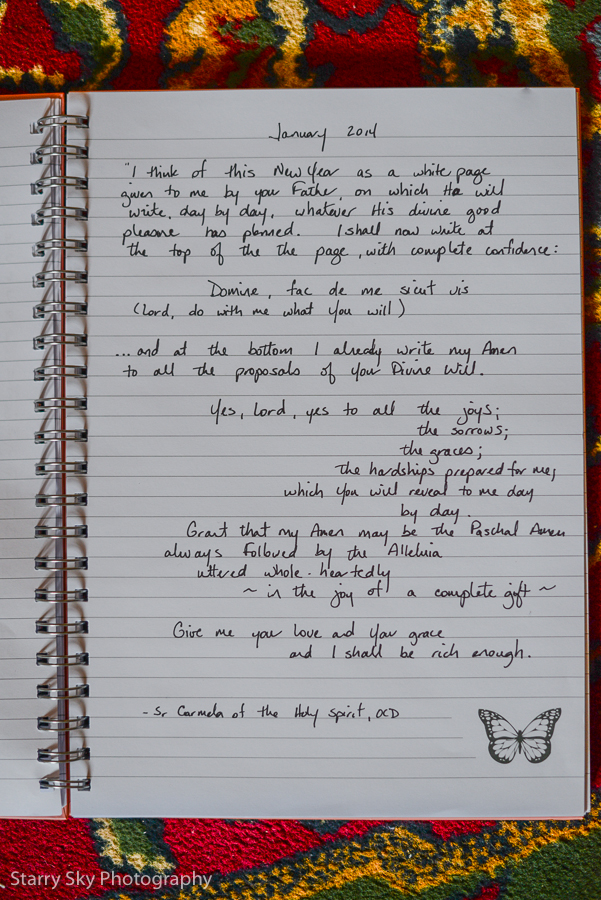 January 2014
"I think of this New Year as a white page
given to me by your Father, on which He will
write, day by day, whatever His divine good
pleasure has planned. I shall now write at
the top of the the page, with complete confidence:
Domine, fac de me sicut vis
(Lord, do with me what You will)
...and at the bottom I already write my Amen
to all the proposals of your Divine Will.
Yes, Lord, yes to all the joys;
the sorrows;
the graces;
the hardships prepared for me,
which you will reveal to me day
by day.
Grant that my Amen may be the Paschal Amen
always followed by the Alleluia
uttered whole-heartedly
~ in the joy of a complete gift ~
Give me your love and your grace
and I shall be rich enough.
- Sr Carmela of the Holy Spirit, OCD
Starry Sky Photography